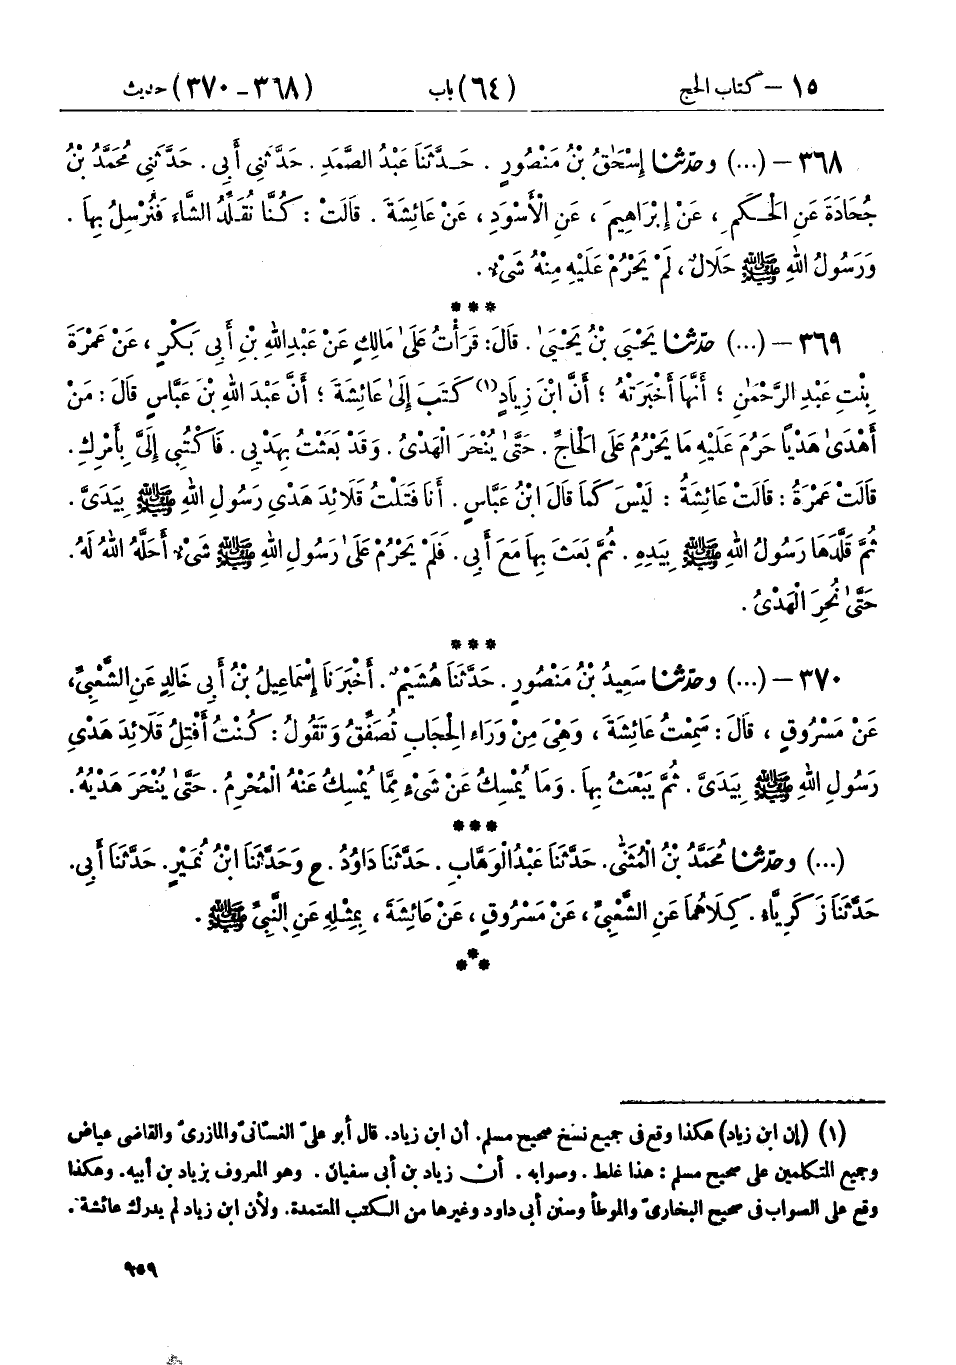 ١٥ – كتاب الحج (٦٤) باب (٣٦٨ – ٣٧٠) حديث
٣٦٨ – (...) وحدّثنا إِسْحَٰقُ بْنُ مَنْصُورٍ . حَدَّثَنَا عَبْدُ الصَّمَدِ . حَدَّثَنِي أَبِي . حَدَّثَنِي مُحَمَّدُ بْنُ
جُحَادَةَ عَنِ الْحَكَمِ ، عَنْ إِبْرَاهِيمَ ، عَنِ الْأَسْوَدِ ، عَنْ عَائِشَةَ . قَالَتْ : كُنَّا نُقَلِّدُ الشَّاءَ فَنُرْسِلُ بِهَا .
وَرَسُولُ اللهِ ﷺ حَلَالٌ ، لَمْ يَحْرُمْ عَلَيْهِ مِنْهُ شَيْءٌ .
***
٣٦٩ – (...) حدّثنا يَحْيَى بْنُ يَحْيَىٰ . قَالَ: قَرَأْتُ عَلَىٰ مَالِكٍ عَنْ عَبْدِاللهِ بْنِ أَبِي بَكْرٍ ، عَنْ عَمْرَةَ
بِنْتِ عَبْدِ الرَّحْمٰنِ ؛ أَنَّهَا أَخْبَرَتْهُ ؛ أَنَّ ابْنَ زِيَادٍ(١) كَتَبَ إِلَىٰ عَائِشَةَ ؛ أَنَّ عَبْدَ اللهِ بْنَ عَبَّاسٍ قَالَ : مَنْ
أَهْدَىٰ هَدْيًا حَرُمَ عَلَيْهِ مَا يَحْرُمُ عَلَى الْحَاجِّ . حَتَّىٰ يُنْحَرَ الْهَدْىُ . وَقَدْ بَعَثْتُ بِهَدْيِي . فَاكْتُبِي إِلَيَّ بِأَمْرِكِ .
قَالَتْ عَمْرَةُ : قَالَتْ عَائِشَةُ : لَيْسَ كَمَا قَالَ ابْنُ عَبَّاسٍ . أَنَا فَتَلْتُ قَلَائِدَ هَدْيِ رَسُولِ اللهِ ﷺ بِيَدَىَّ .
ثُمَّ قَلَّدَهَا رَسُولُ اللهِ ﷺ بِيَدِهِ . ثُمَّ بَعَثَ بِهَا مَعَ أَبِي . فَلَمْ يَحْرُمْ عَلَىٰ رَسُولِ اللهِ ﷺ شَىْءٌ أَحَلَّهُ اللهُ لَهُ .
حَتَّىٰ نُحِرَ الْهَدْىُ .
***
٣٧٠ – (...) وحدّثنا سَعِيدُ بْنُ مَنْصُورٍ . حَدَّثَنَا هُشَيْمٌ . أَخْبَرَنَا إِسْمَاعِيلُ بْنُ أَبِي خَالِدٍ عَنِ الشَّعْبِيِّ،
عَنْ مَسْرُوقٍ ، قَالَ : سَمِعْتُ عَائِشَةَ ، وَهْىَ مِنْ وَرَاءِ الْحِجَابِ تُصَفِّقُ وَتَقُولُ : كُنْتُ أَفْتِلُ قَلَائِدَ هَدْىِ
رَسُولِ اللهِ ﷺ بِيَدَىَّ . ثُمَّ يَبْعَثُ بِهَا . وَمَا يُمْسِكُ عَنْ شَىْءٍ مِمَّا يُمْسِكُ عَنْهُ الْمُحْرِمُ . حَتَّىٰ يُنْحَرَ هَدْيُهُ .
***
(...) وحدّثنا مُحَمَّدُ بْنُ الْمُثَنَّىٰ . حَدَّثَنَا عَبْدُالْوَهَّابِ . حَدَّثَنَا دَاوُدُ . ح وَحَدَّثَنَا ابْنُ نُمَيْرٍ . حَدَّثَنَا أَبِي .
حَدَّثَنَا زَكَرِيَّاءُ . كِلَاهُمَا عَنِ الشَّعْبِيِّ ، عَنْ مَسْرُوقٍ ، عَنْ عَائِشَةَ ، بِمِثْلِهِ عَنِ النَّبِيِّ ﷺ .
***
(١) (إن ابن زياد) هكذا وقع في جميع نسخ صحيح مسلم. أن ابن زياد. قال أبو علىّ الغسّانىّ والمازرىّ والقاضى عياض
وجميع المتكلمين على صحيح مسلم : هذا غلط . وصوابه . أن زياد بن أبى سفيان . وهو المعروف بزياد بن أبيه. وهكذا
وقع على الصواب فى صحيح البخارىّ والموطأ وسنن أبى داود وغيرها من الكتب المعتمدة. ولأن ابن زياد لم يدرك عائشة .
٩٥٩